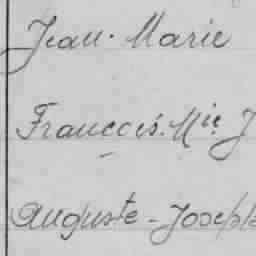 Jean. Marie
Francois. Mie J
Auguste - Joseph